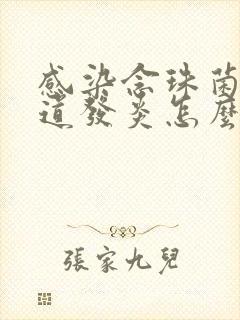 感染念珠菌
道發炎怎麼
張家九兒